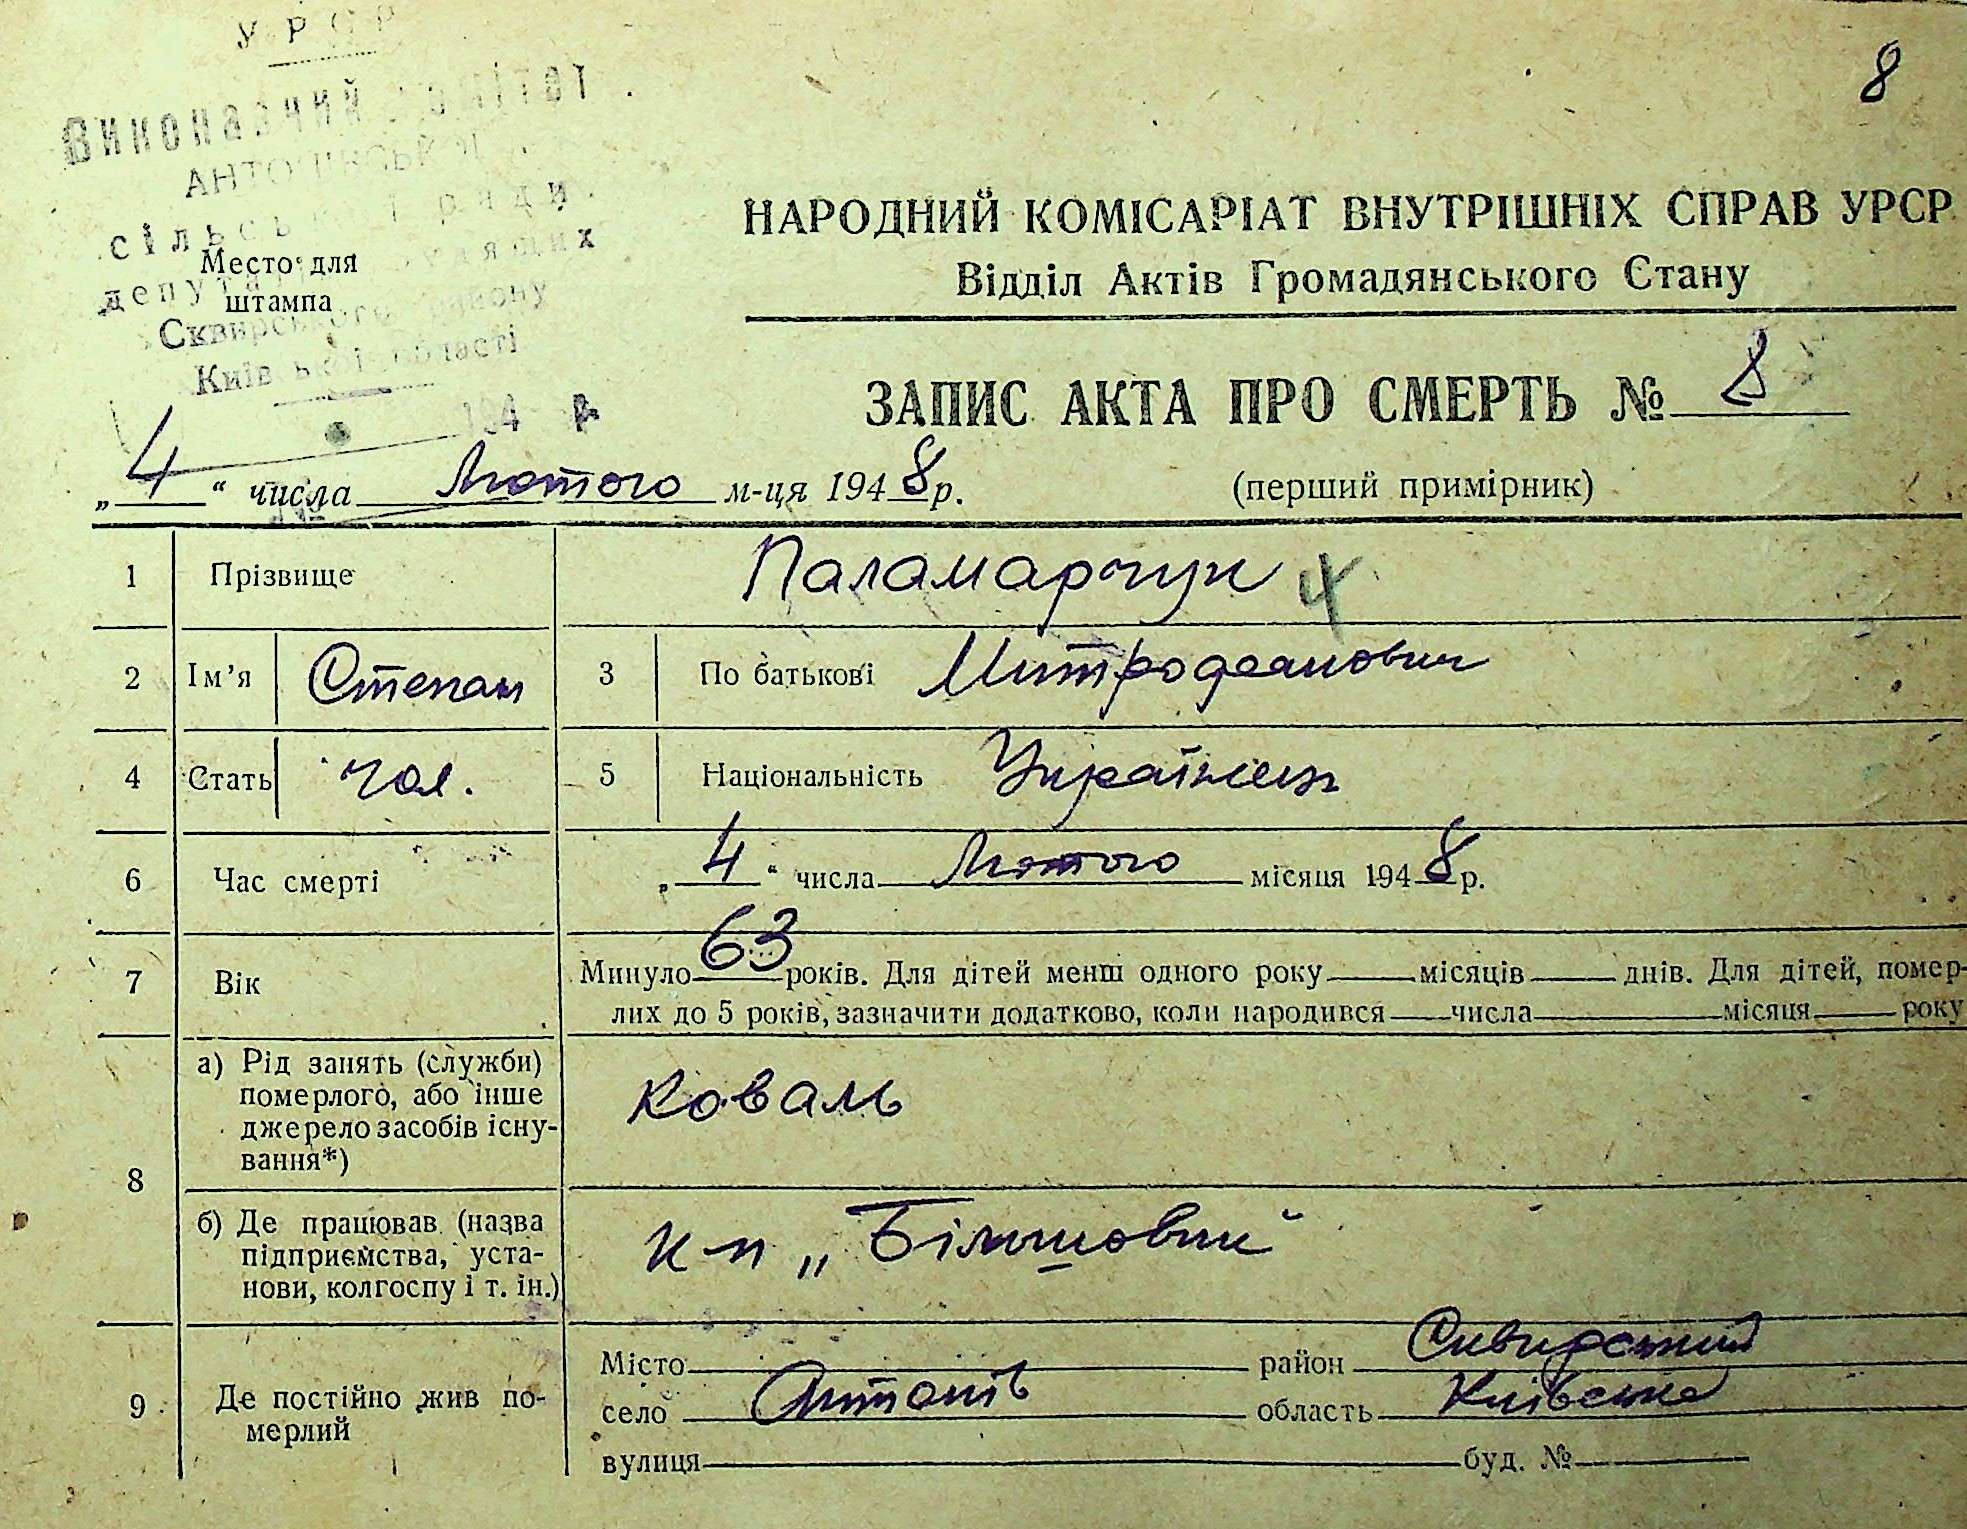 УРСР
Виконавчий комітет
сільської ради
депутатів трудящих
Сквирського району
Київської області
194 р.
Место для
штампа
8
НАРОДНИЙ КОМІСАРІАТ ВНУТРІШНІХ СПРАВ УРСР
Відділ Актів Громадянського Стану
ЗАПИС АКТА ПРО СМЕРТЬ № 8
„4“ числа Лютого м-ця 1948 р. (перший примірник)
1 Прізвище Паламарчук 4
2 Ім’я Степан 3 По батькові
4 Стать чол. 5 Національність Українець
6 Час смерті „4“ числа Лютого місяця 1948 р.
7 Вік Минуло 63 років. Для дітей менш одного року місяців днів. Для дітей, помер-
лих до 5 років, зазначити додатково, коли народився числа місяця року
8 а) Рід занять (служби)
померлого, або інше
джерело засобів існу-
вання*)
Коваль
б) Де працював (назва
підприємства, уста-
нови, колгоспу і т. ін.)
к-п „Більшовик“
9 Де постійно жив по-
мерлий
Місто район Сквирський
село Антонів область Київська
вулиця буд. №